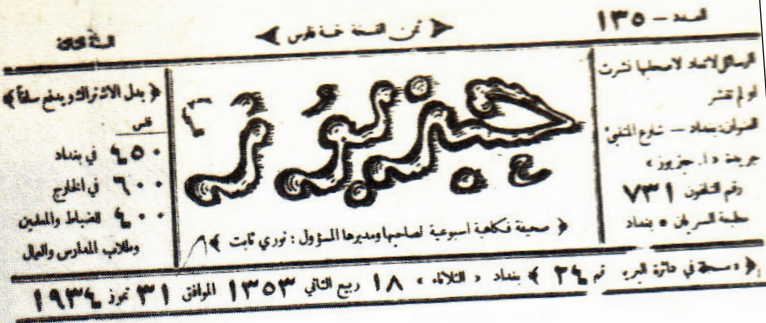 العدد — ١٣٥
ثمن النسخة خمسة فلوس
السنة الثالثة
الرسائل لاتعاد لاصحابها نشرت
او لم تنشر
العنوان: بغداد — شارع المتنبي
جريدة « ا. حبزبوز »
رقم التلفون ٧٣١
مطبعة السريان ‎٥ بغداد
حبزبوز
﴿ صحيفة فكاهية اسبوعية لصاحبها ومديرها المسؤول : نوري ثابت ﴾
﴿ بدل الاشتراك ويدفع سلفاً ﴾
فلس
٤٥٠ في بغداد
٦٠٠ في الخارج
٤٠٠ للضباط والمعلمين
وطلاب المدارس والعمال
﴿ مسجلة في دائرة البريد رقم ٢٤ ﴾ بغداد « الثلاثاء » ١٨ ربيع الثاني ١٣٥٣ الموافق ٣١ تموز ١٩٣٤